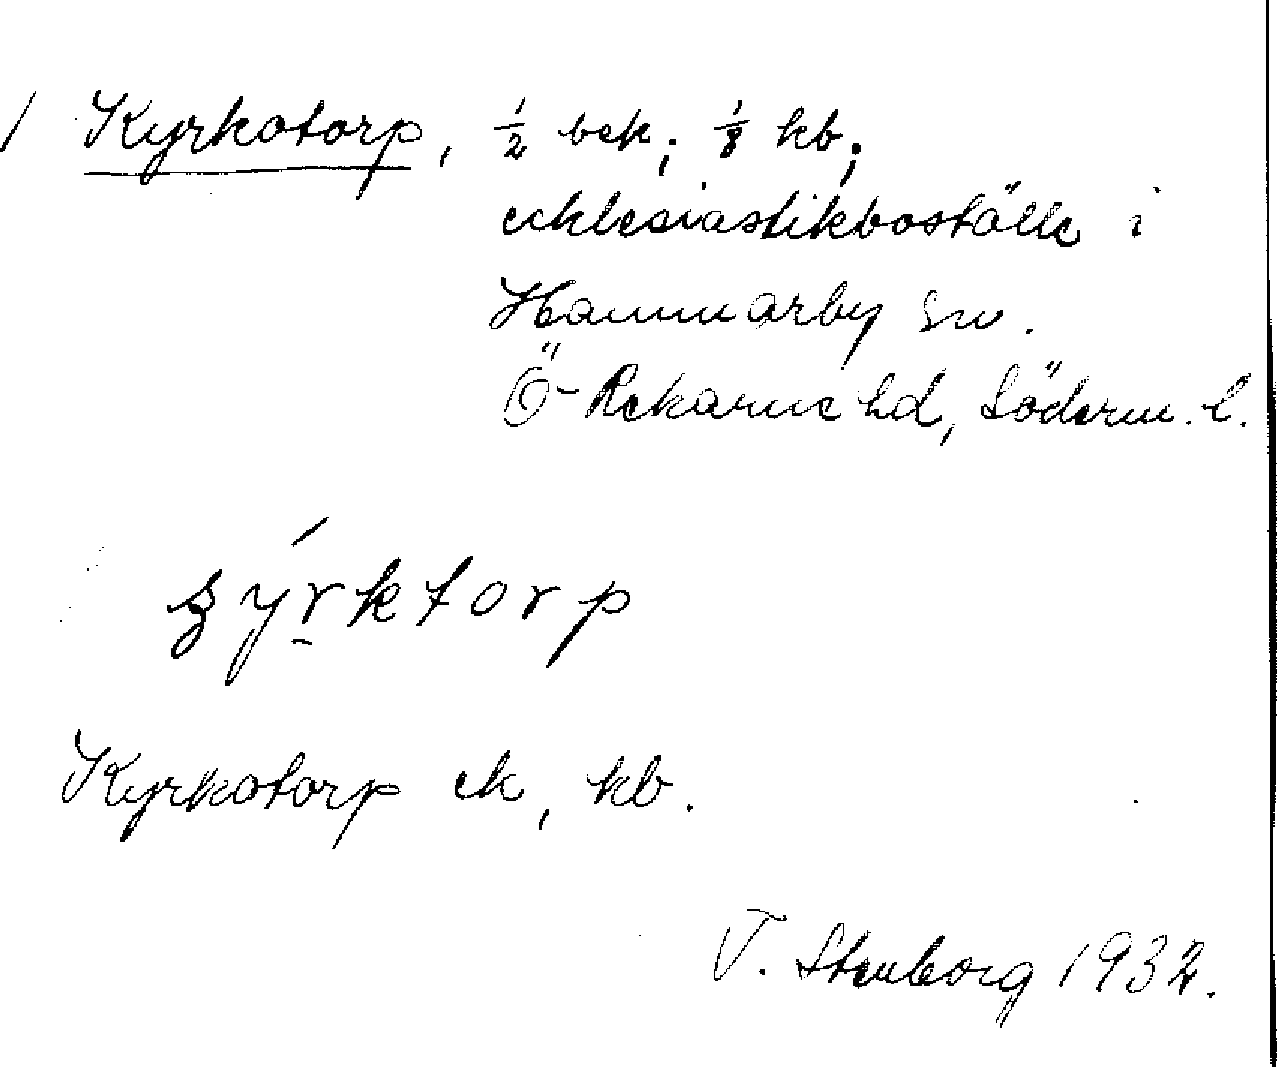 / Kyrkotorp, 1/2 bek; 1/8 kb;
ecklesiastikboställe i
Hammarby sn.
Ö-Rekarne hd, Söderm. l.
kyrktorp
Kyrkotorp ek, kb.
T. Stenborg 1932.